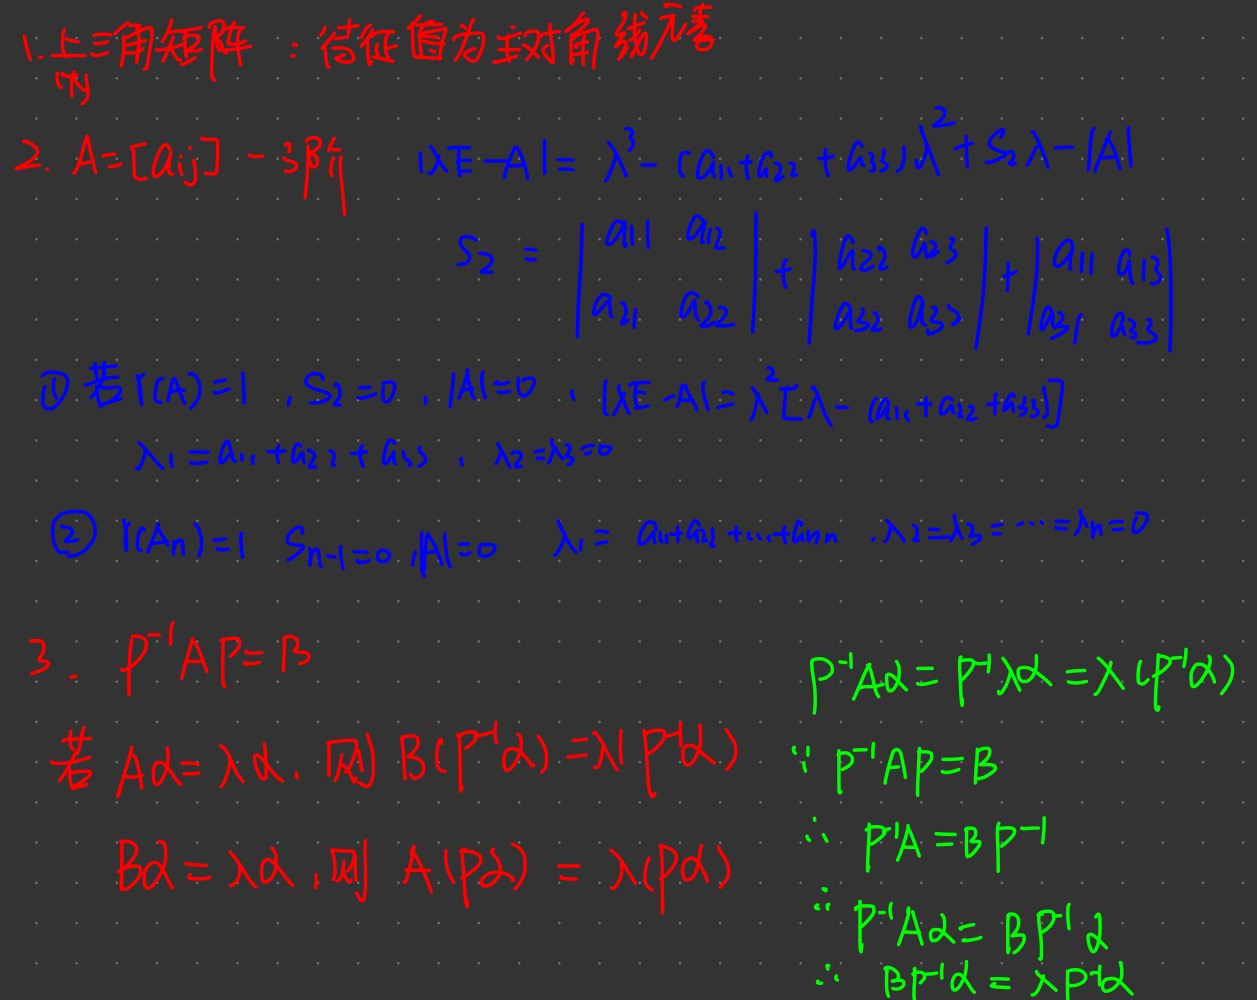 1. 上三角矩阵：特征值为主对角线元素
(下)
2. A=[aij] - 3阶 |λE-A| = λ³ - (a₁₁+a₂₂+a₃₃)λ² + S₂λ - |A|
S₂ = |a₁₁ a₁₂; a₂₁ a₂₂| + |a₂₂ a₂₃; a₃₂ a₃₃| + |a₁₁ a₁₃; a₃₁ a₃₃|
① 若 r(A)=1, S₂=0, |A|=0, |λE-A| = λ²[λ-(a₁₁+a₂₂+a₃₃)]
λ₁ = a₁₁+a₂₂+a₃₃, λ₂=λ₃=0
② r(Aₙ)=1 Sₙ₋₁=0, |A|=0 λ₁ = a₁₁+a₂₂+...+aₙₙ, λ₂=λ₃=...=λₙ=0
3. P⁻¹AP=B
若 Aα=λα, 则 B(P⁻¹α)=λ(P⁻¹α)
Bα=λα, 则 A(Pα) = λ(Pα)
P⁻¹Aα = P⁻¹λα = λ(P⁻¹α)
∵ P⁻¹AP=B
∴ P⁻¹A=BP⁻¹
∵ P⁻¹Aα = BP⁻¹α
∴ BP⁻¹α = λP⁻¹α